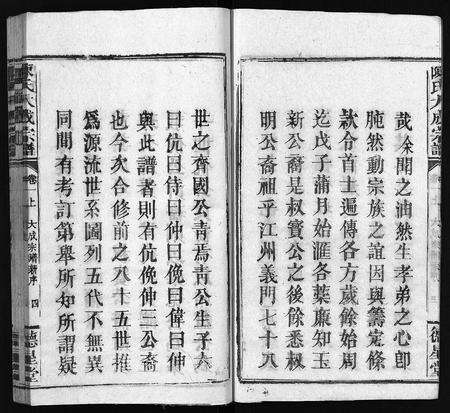 陳氏大成宗譜
哉余聞之油然生孝弟之心卽
肫然動宗族之誼因與籌定條
款分首士遍傳各方歲餘始周
迄戊子蒲月始滙各葉廉知玉
新公裔是叔寶公之後餘悉叔
明公裔祖乎江州義門七十八
德星堂
世之齊國公靑焉靑公生子六
曰伉曰侍曰伸曰俛曰偉曰伸
與此譜著則有伉俛伸三公裔
也今欠合修前之八十五世推
爲源流世系圖列五代不無異
同間有考訂第舉所知所謂疑
陳氏大成宗譜
卷一上
大成宗譜新序
四
德星堂